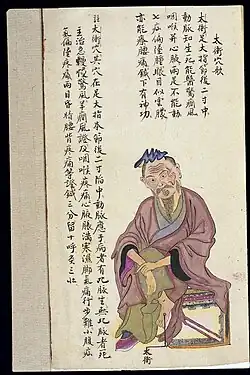 太衝穴歌
太衝足大指節後二寸中
動脉知生死能醫驚癇風
咽喉并心脉兩足不能動
七疝偏墜腫眼目似雲朦
亦能療腰痛鍼下有神功
註太衝穴其穴在足大指本節後二寸陷中動脉應手病者有此脉生無此脉者死
主治急慢驚風羊癇風證及咽喉疼痛心脹滿寒濕脚氣痛行步難小腹疝
氣偏墜疼痛兩目昏暗腰背疼痛等證鍼三分留十呼灸三壯
太衝